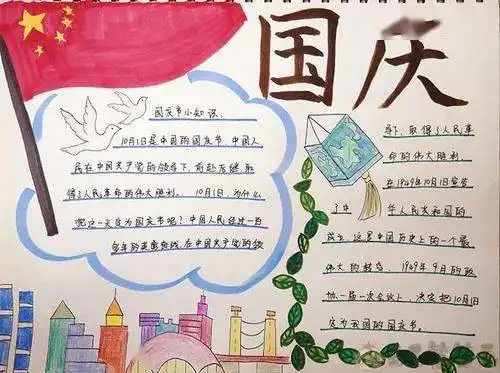 国庆
国庆节小知识:
10月1日是中国的国庆节,中国人
民在中国共产党的领导下,前赴后继取
得了人民革命的伟大胜利。10月1日,为什么
把这一天定为国庆节呢?中国人民经过一百
多年的英勇奋战,在中国共产党的领
导下,取得了人民革
命的伟大胜利。
在1949年10月1日宣告
了中
华人民共和国的
成立,这是中国历史上的一个最
伟大的转变。1949年9月的政
协一届一次会议上,决定把10月1日
定为我国的国庆节。